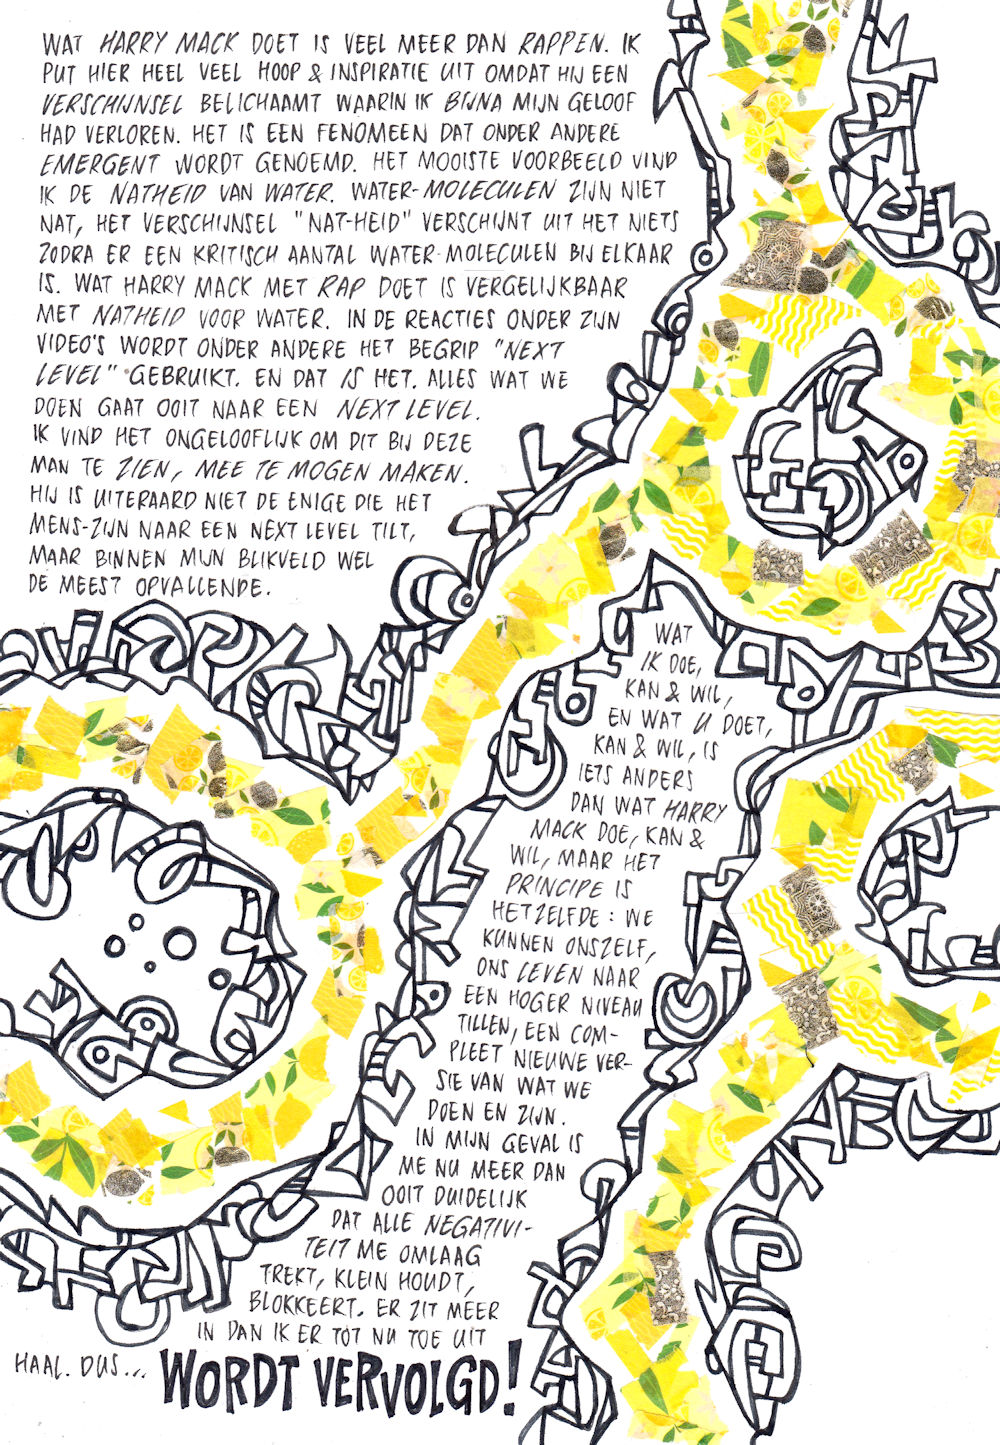 WAT HARRY MACK DOET IS VEEL MEER DAN RAPPEN. IK
PUT HIER HEEL VEEL HOOP & INSPIRATIE UIT OMDAT HIJ EEN
VERSCHIJNSEL BELICHAAMT WAARIN IK BIJNA MIJN GELOOF
HAD VERLOREN. HET IS EEN FENOMEEN DAT ONDER ANDERE
EMERGENT WORDT GENOEMD. HET MOOISTE VOORBEELD VIND
IK DE NATHEID VAN WATER. WATER-MOLECULEN ZIJN NIET
NAT, HET VERSCHIJNSEL "NAT-HEID" VERSCHIJNT UIT HET NIETS
ZODRA ER EEN KRITISCH AANTAL WATER-MOLECULEN BIJ ELKAAR
IS. WAT HARRY MACK MET RAP DOET IS VERGELIJKBAAR
MET NATHEID VOOR WATER. IN DE REACTIES ONDER ZIJN
VIDEO'S WORDT ONDER ANDERE HET BEGRIP "NEXT
LEVEL" GEBRUIKT. EN DAT IS HET. ALLES WAT WE
DOEN GAAT OOIT NAAR EEN NEXT LEVEL.
IK VIND HET ONGELOOFLIJK OM DIT BIJ DEZE
MAN TE ZIEN, MEE TE MOGEN MAKEN.
HIJ IS UITERAARD NIET DE ENIGE DIE HET
MENS-ZIJN NAAR EEN NEXT LEVEL TILT,
MAAR BINNEN MIJN BLIKVELD WEL
DE MEEST OPVALLENDE.
WAT
IK DOE,
KAN & WIL,
EN WAT U DOET,
KAN & WIL, IS
IETS ANDERS
DAN WAT HARRY
MACK DOE, KAN &
WIL, MAAR HET
PRINCIPE IS
HETZELFDE: WE
KUNNEN ONSZELF,
ONS LEVEN NAAR
EEN HOGER NIVEAU
TILLEN, EEN COM-
PLEET NIEUWE VER-
SIE VAN WAT WE
DOEN EN ZIJN.
IN MIJN GEVAL IS
ME NU MEER DAN
OOIT DUIDELIJK
DAT ALLE NEGATIVI-
TEIT ME OMLAAG
TREKT, KLEIN HOUDT,
BLOKKEERT. ER ZIT MEER
IN DAN IK ER TOT NU TOE UIT
HAAL. DUS... WORDT VERVOLGD!